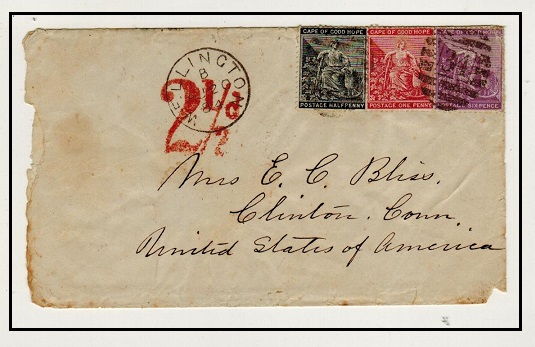 CAPE OF GOOD HOPE CAPE OF GOOD HOPE
POSTAGE HALFPENNY POSTAGE ONE PENNY POSTAGE SIX PENCE
WELLINGTON
B
2½d
Mrs E. C. Bliss.
Clinton. Conn.
United States of America